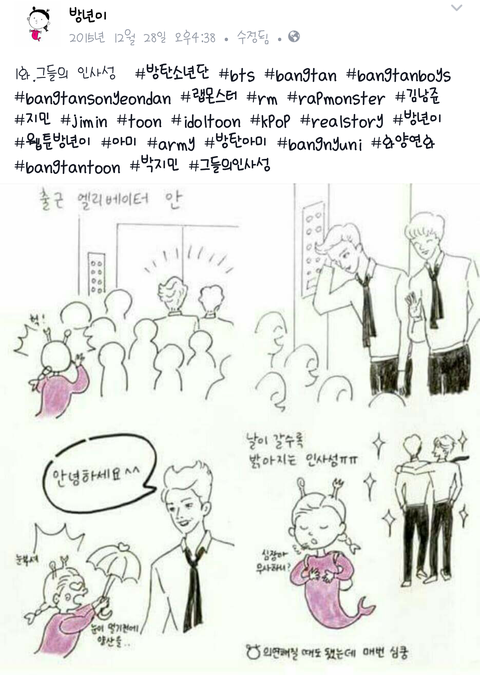 방년이
2015년 12월 28일 오후4:38 • 수정됨 •
1화.그들의 인사성 #방탄소년단 #bts #bangtan #bangtanboys
#bangtansonyeondan #랩몬스터 #rm #rapmonster #김남준
#지민 #jimin #toon #idoltoon #kpop #realstory #방년이
#웹툰방년이 #아미 #army #방탄아미 #bangnyuni #슈양연슈
#bangtantoon #박지민 #그들의인사성
출근 엘리베이터 안
헉!
안녕하세요^^
눈부셔
눈이 멀기전에
양산을..
날이 갈수록
밝아지는 인사성ㅠㅠ
심장아
무사하니?
의연해질 때도 됐는데 매번 심쿵